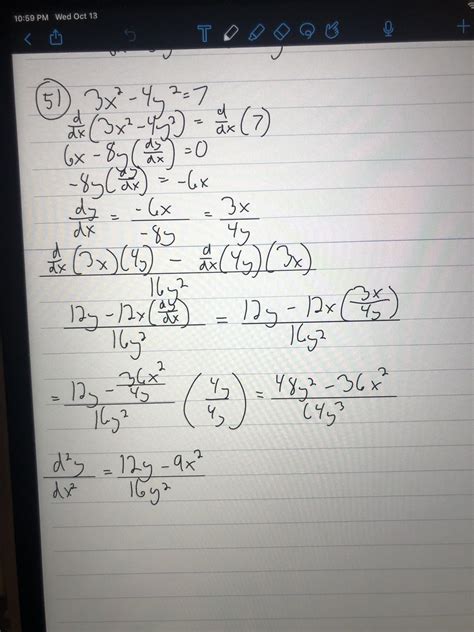 10:59 PM Wed Oct 13
T
51) 3x² - 4y² = 7
d/dx (3x² - 4y²) = d/dx (7)
6x - 8y(dy/dx) = 0
-8y(dy/dx) = -6x
dy/dx = -6x/-8y = 3x/4y
(d/dx (3x)(4y) - d/dx (4y)(3x))/16y²
(12y - 12x(dy/dx))/16y² = (12y - 12x(3x/4y))/16y²
= (12y - 36x²/4y)/16y² (4y/4y) = (48y² - 36x²)/64y³
d²y/dx² = (12y - 9x²)/16y²